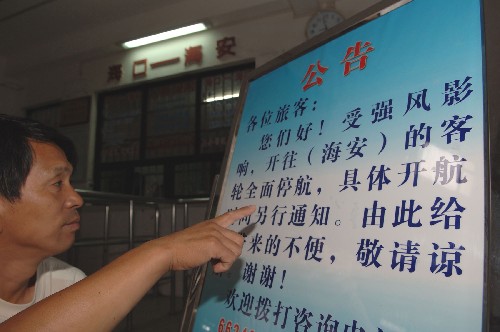 海口—海安
公告
各位旅客：
您们好！受强风影
响，开往（海安）的客
轮全面停航，具体开航
时间另行通知。由此给
来的不便，敬请谅
谢谢！
欢迎拨打咨询